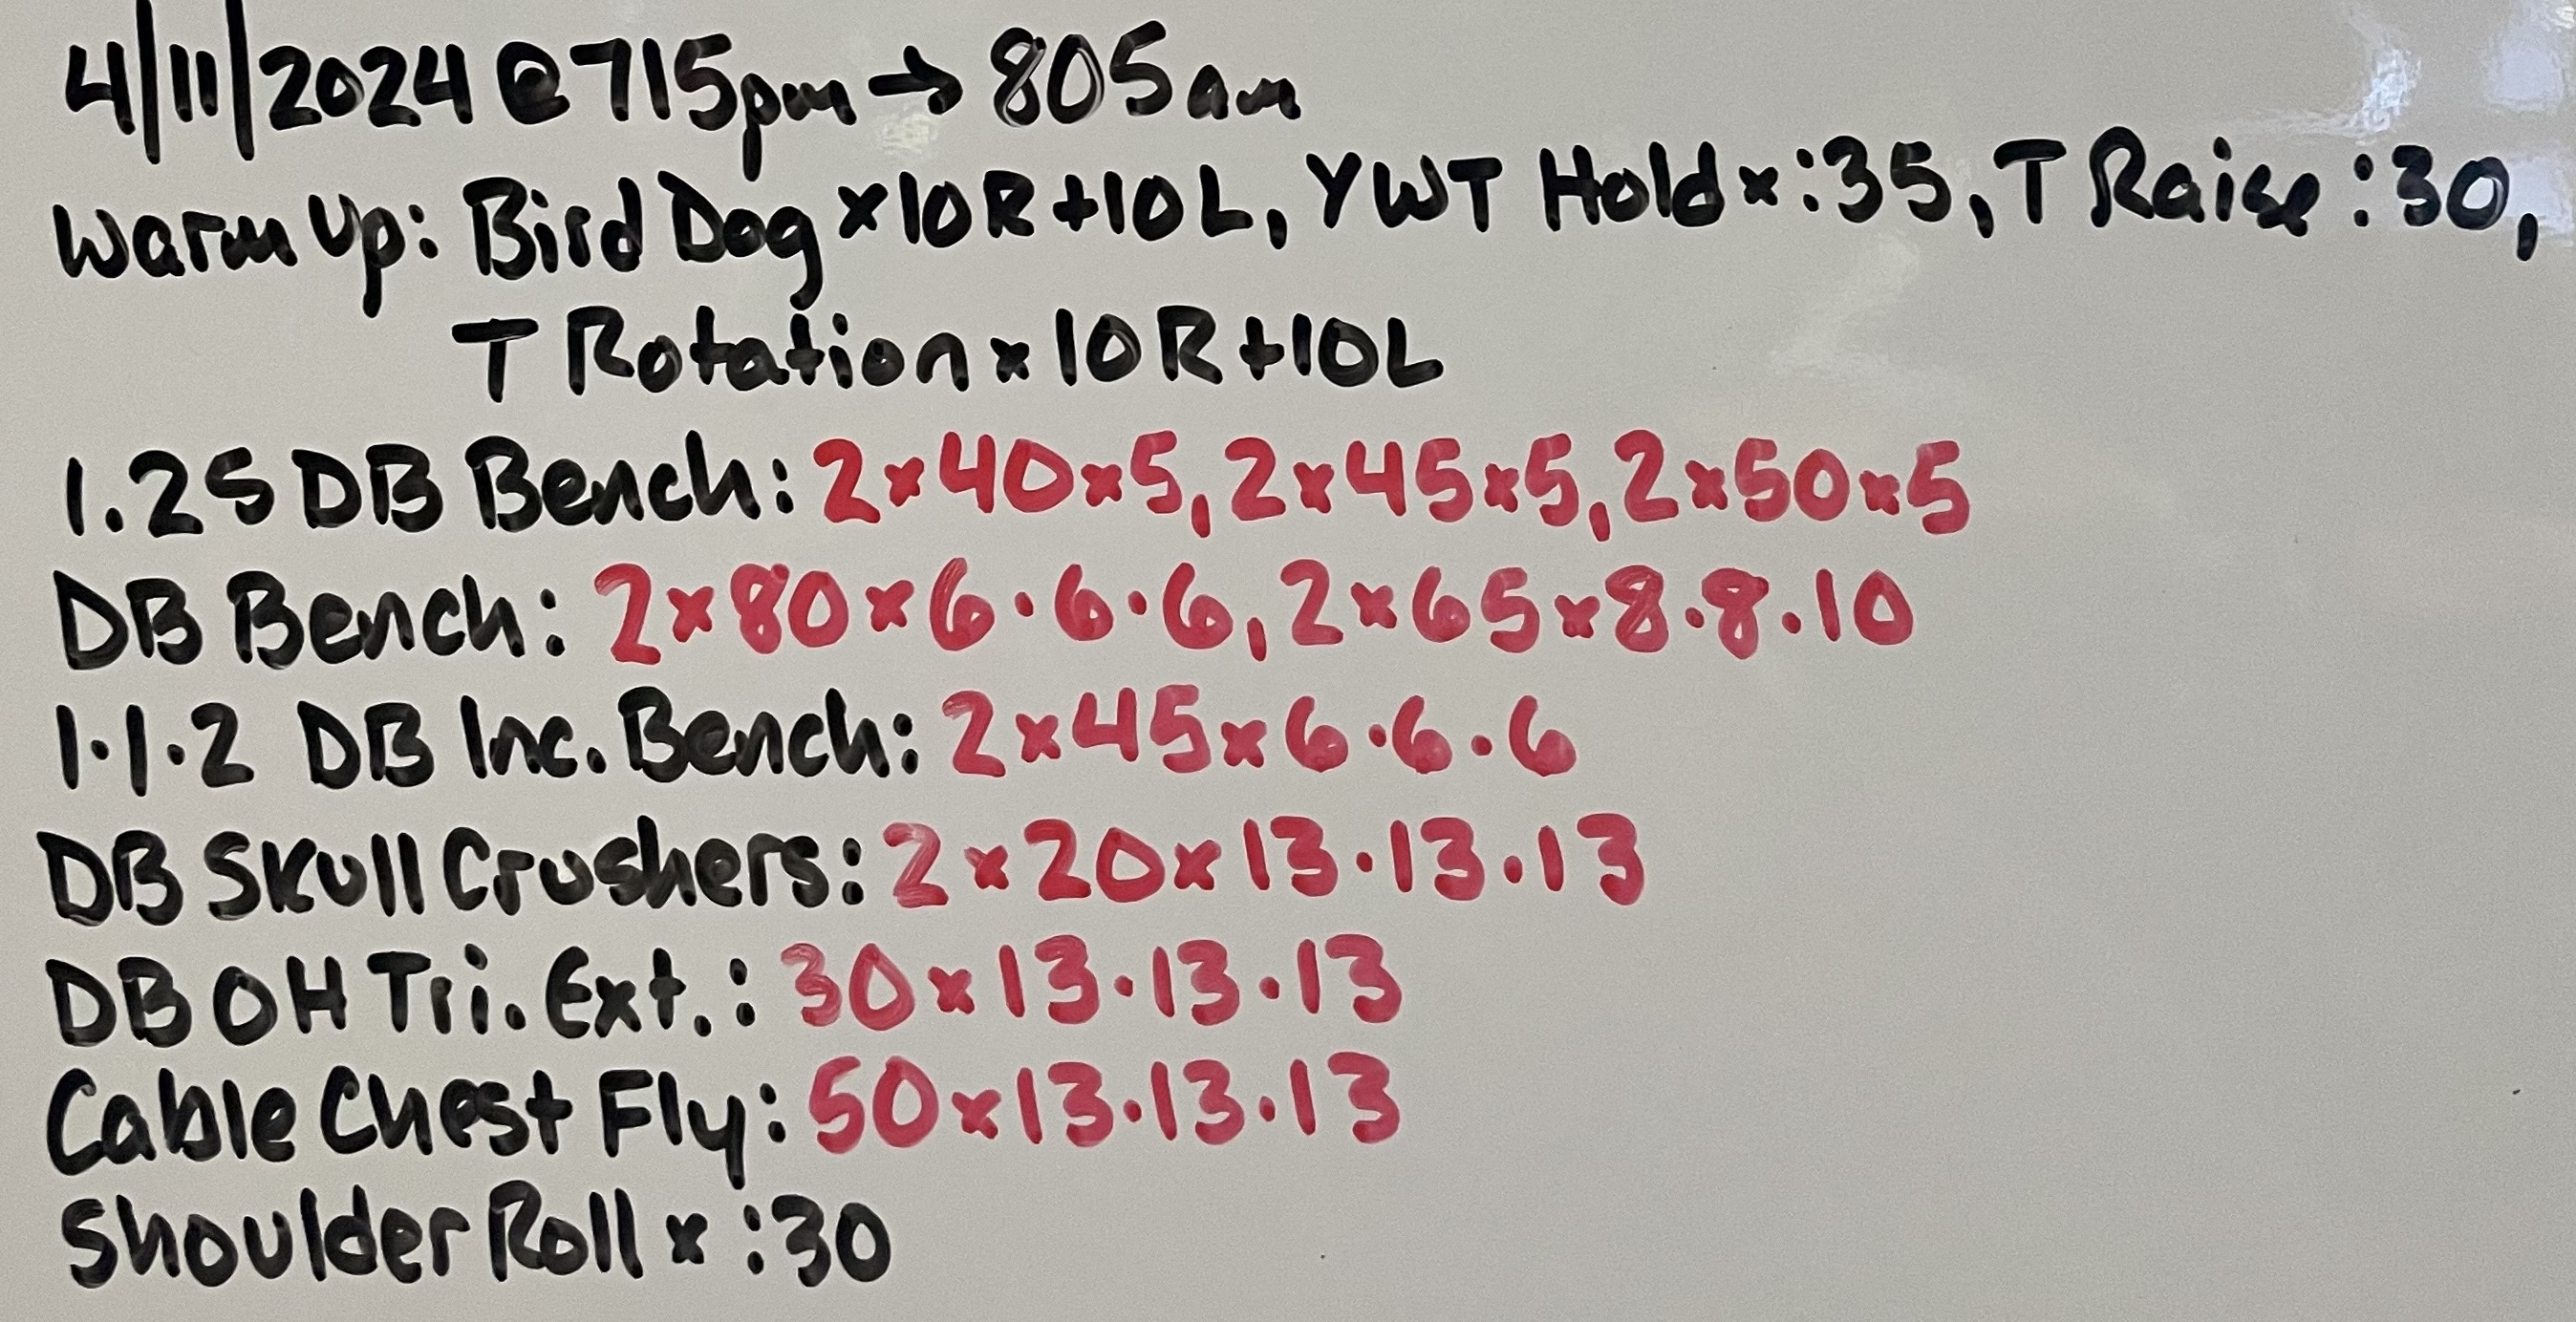 4/11/2024 @ 715pm → 805am
Warm Up: Bird Dog x10R+10L, YWT Hold x :35, T Raise :30,
T Rotation x 10R+10L
1.25 DB Bench: 2x40x5, 2x45x5, 2x50x5
DB Bench: 2x80x6·6·6, 2x65x8·8·10
1·1·2 DB Inc. Bench: 2x45x6·6·6
DB Skull Crushers: 2x20x13·13·13
DB OH Tri. Ext.: 30x13·13·13
Cable Chest Fly: 50x13·13·13
Shoulder Roll x :30